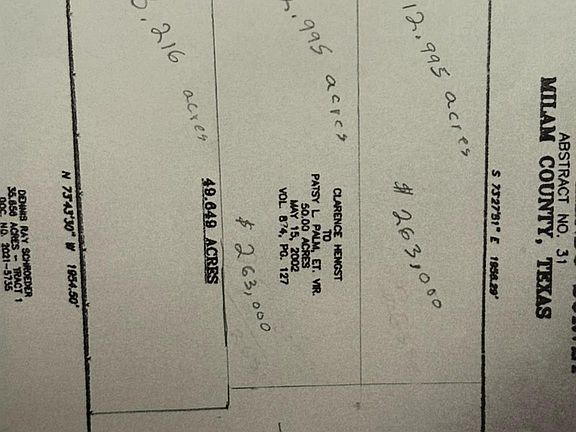 ABSTRACT NO. 31
MILAM COUNTY, TEXAS
S 73°27'51" E 1958.29'
12.995 acres
$ 263,000
2.995 acres
CLARENCE HENGST
TO
PATSY L. PALM, ET. VIR.
50.00 ACRES
MAY 15, 2002
VOL. 874, PG. 127
$ 263,000
.216 acres
49.649 ACRES
N 73°43'30" W 1954.50'
DENNIS RAY SCHROEDER
35.656 ACRES - TRACT 1
DOC. NO. 2021-5735